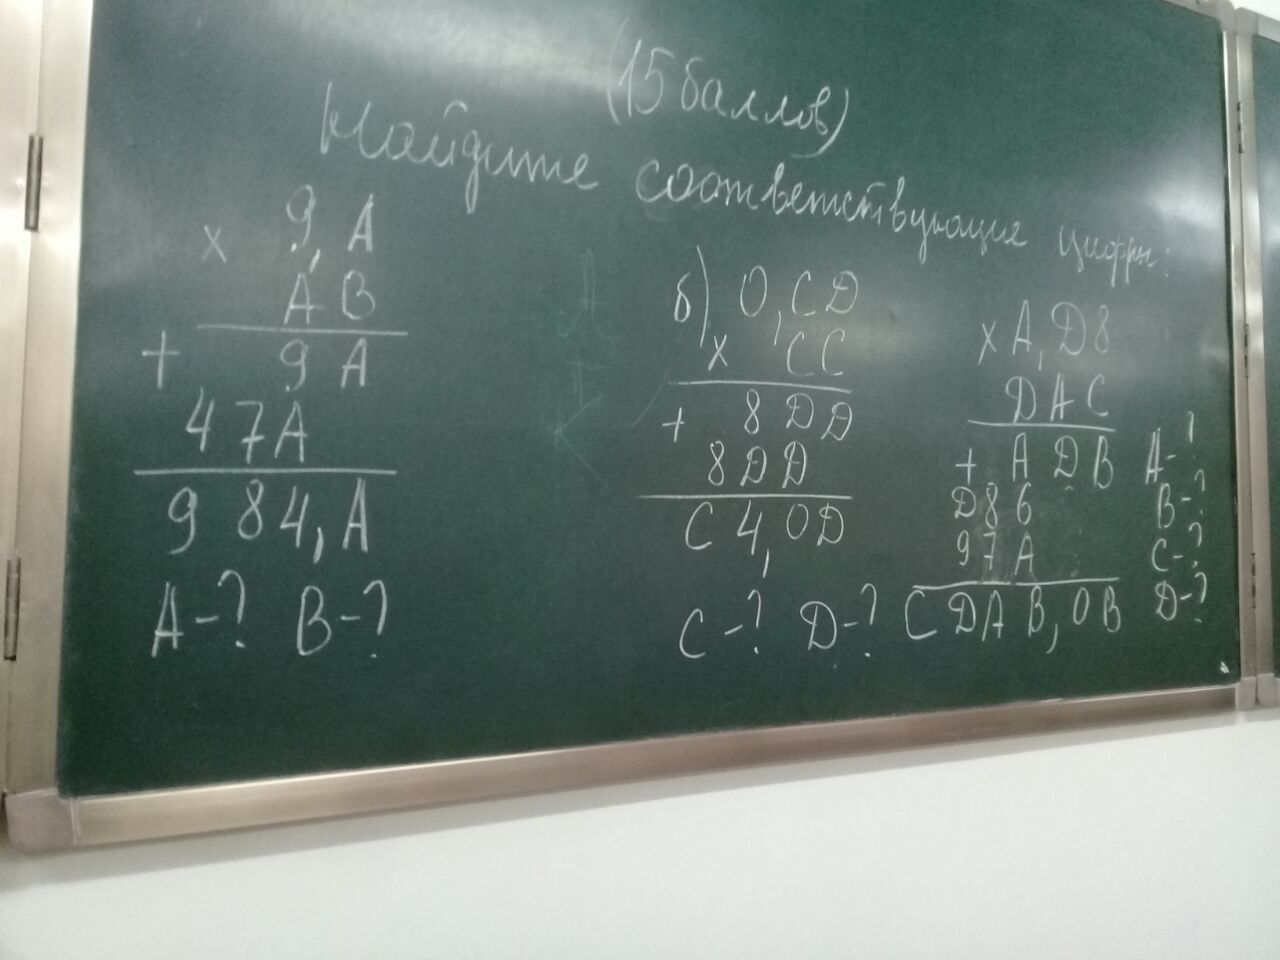 (15 баллов)
Найдите соответствующие цифры:
9,A
x AB
+ 9A
47A
984,A
A-? B-?
б) 0,CD
x CC
+ 8DD
8DD
C4,0D
C-? D-?
x A,D8
DAC
+ ADB
D86
97A
CDAB,0B
A-?
B-?
C-?
D-?